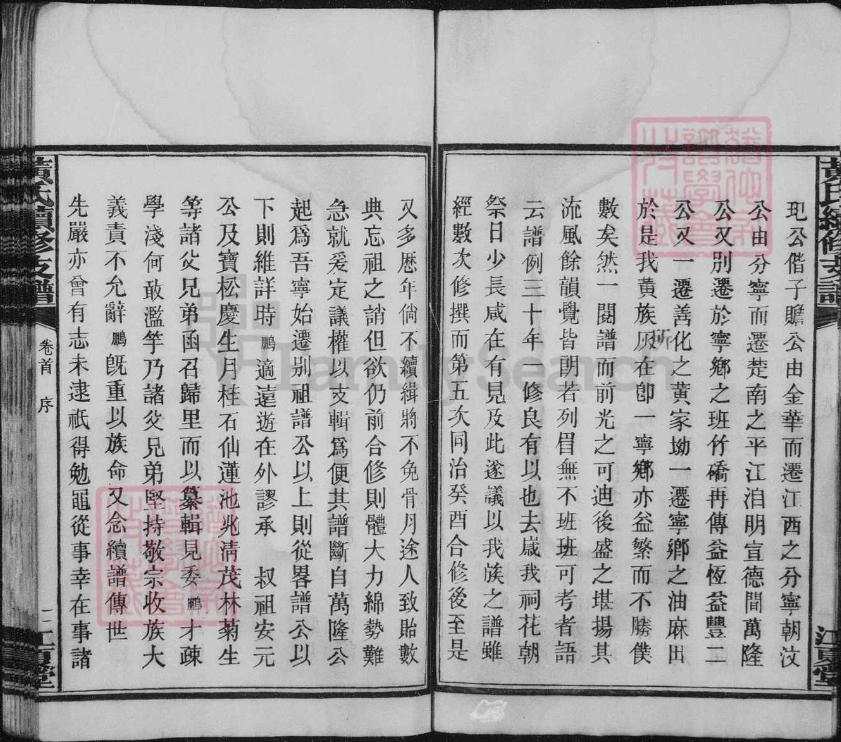 黃氏續修支譜
玘公偕子贍公由金華而遷江西之分寧朝汶
公由分寧而遷楚南之平江洎明宣德間萬隆
公又別遷於寧鄉之班竹礄再傳益恆益豐二
公又一遷善化之黃家坳一遷寧鄉之油麻田
於是我黃族所在卽一寧鄉亦益繁而不勝僕
數矣然一閱譜而前光之可迪後盛之堪揚其
流風餘韻覺皆朗若列眉無不班班可考者語
云譜例三十年一修良有以也去歲我祠花朝
祭日少長咸在有見及此遂議以我族之譜雖
經數次修撰而第五次同治癸酉合修後至是
江夏堂
又多歷年倘不續緝將不免骨月途人致貽數
典忘祖之誚但欲仍前合修則體大力綿勢難
急就爰定議權以支輯爲便其譜斷自萬隆公
起爲吾寧始遷別祖譜公以上則從畧譜公以
下則維詳時鵬適遠遊在外謬承 叔祖安元
公及寶松慶生月桂石仙蓮池兆清茂林菊生
等諸父兄弟函召歸里而以纂輯見委鵬才疎
學淺何敢濫竽乃諸父兄弟堅持敬宗收族大
義責不允辭鵬旣重以族命又念續譜傳世
先嚴亦曾有志未逮祇得勉黽從事幸在事諸
黃氏續修支譜
卷首 序
二
江夏堂
FamilySearch